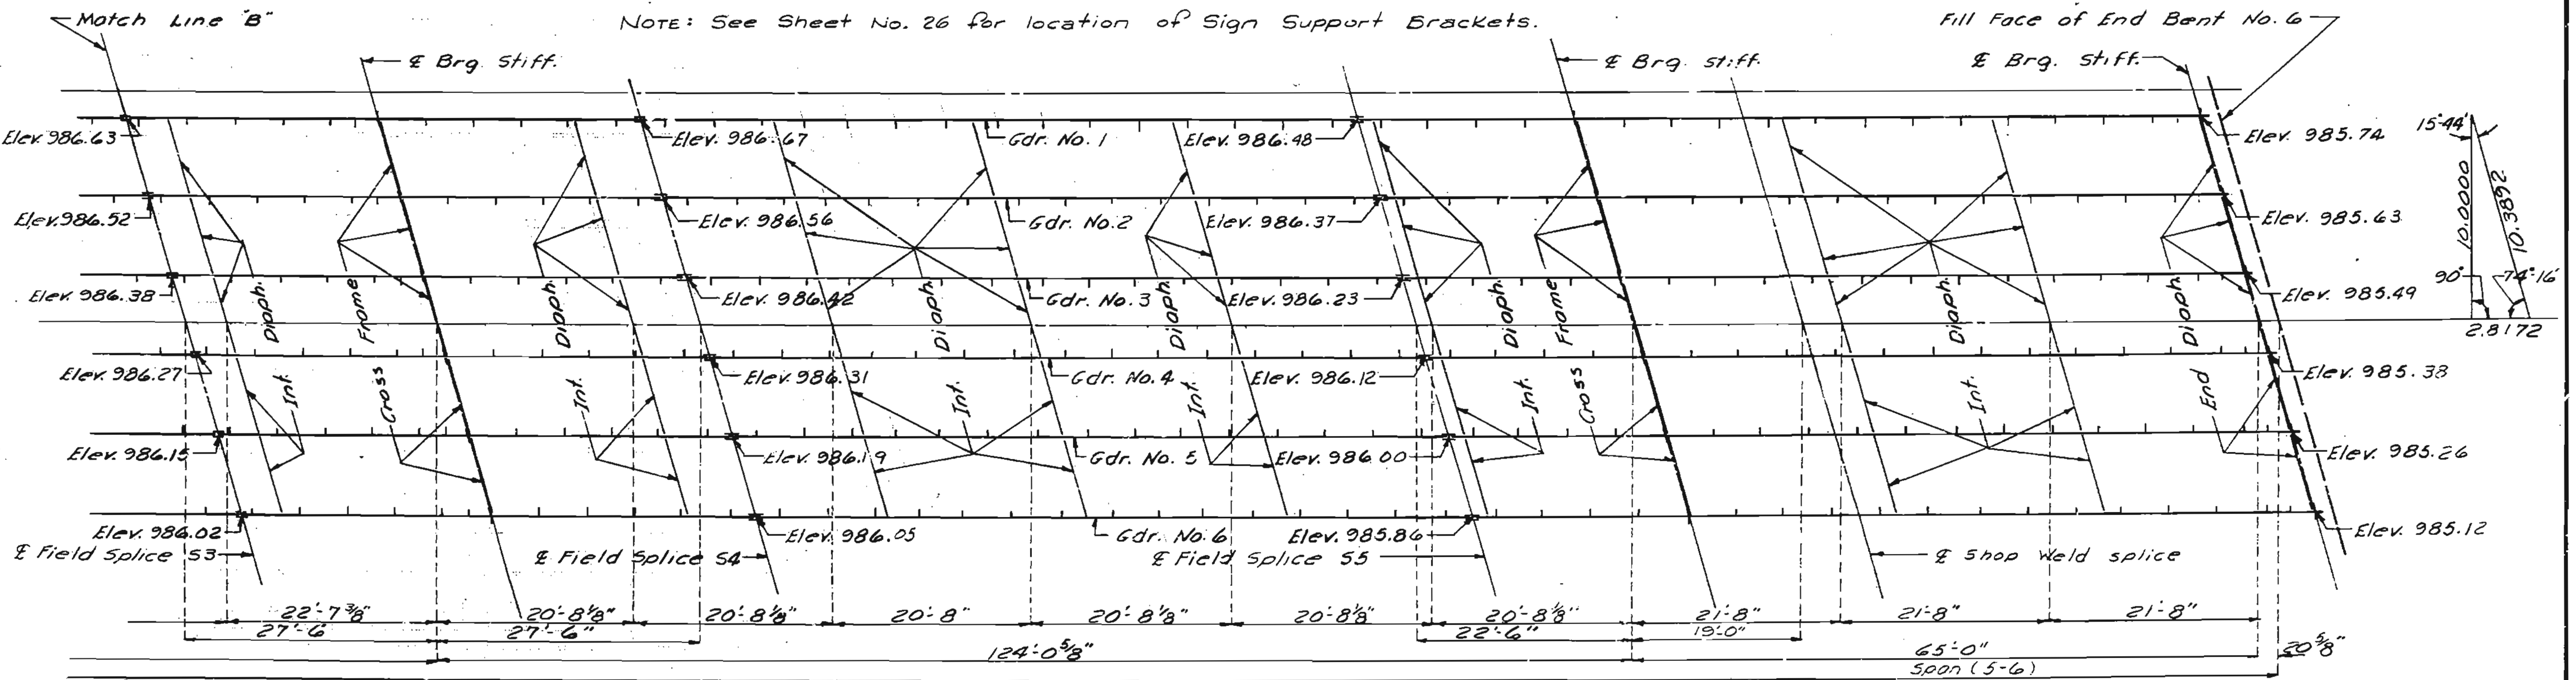 Match Line "B"
NOTE: See Sheet No. 26 for location of Sign Support Brackets.
Fill Face of End Bent No. 6
℄ Brg. Stiff.
℄ Brg. Stiff.
℄ Brg. Stiff.
Elev. 986.63
Elev. 986.67
Gdr. No. 1
Elev. 986.48
Elev. 985.74
15°44'
Elev. 986.52
Elev. 986.56
Gdr. No. 2
Elev. 986.37
Elev. 985.63
10.0000
10.3892
Elev. 986.38
Elev. 986.42
Gdr. No. 3
Elev. 986.23
Elev. 985.49
90°
74°16'
2.8172
Int. Diaph.
Cross Frame
Int. Diaph.
Int. Diaph.
Int. Diaph.
Int. Diaph.
Cross Frame
Int. Diaph.
End Diaph.
Elev. 986.27
Elev. 986.31
Gdr. No. 4
Elev. 986.12
Elev. 985.38
Elev. 986.15
Elev. 986.19
Gdr. No. 5
Elev. 986.00
Elev. 985.26
Elev. 986.02
Elev. 986.05
Gdr. No. 6
Elev. 985.86
Elev. 985.12
℄ Field Splice S3
℄ Field Splice S4
℄ Field Splice S5
℄ Shop Weld splice
22'-7 3/8"
20'-8 1/8"
20'-8 1/8"
20'-8"
20'-8 1/8"
20'-8 1/8"
20'-8 1/8"
21'-8"
21'-8"
21'-8"
27'-6"
27'-6"
22'-6"
19'-0"
124'-0 5/8"
65'-0"
20 5/8"
Span (5-6)